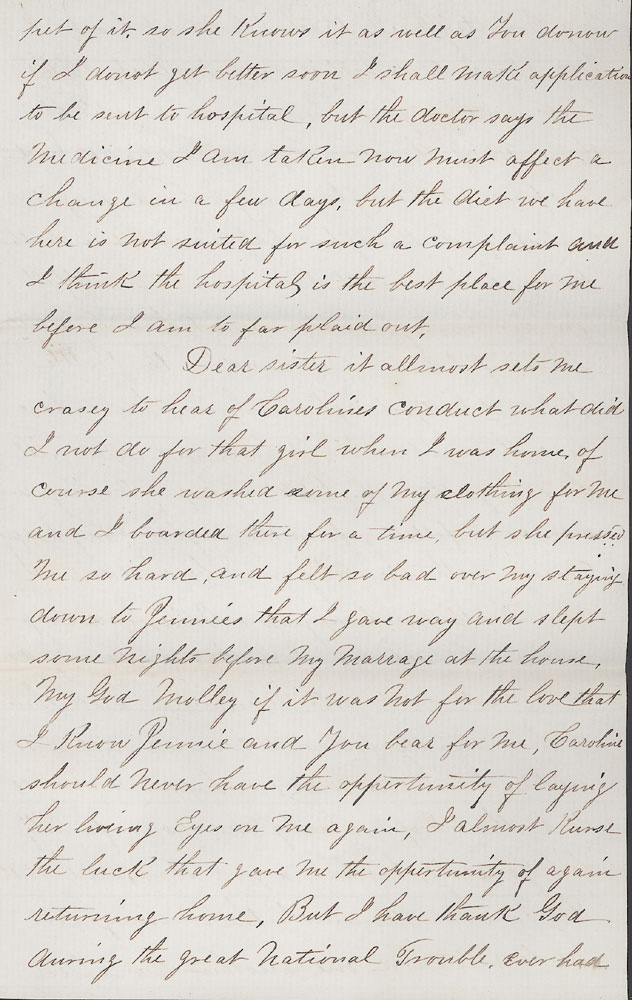 pet of it. so she knows it as well as You donow
if I donot get better soon I shall make application
to be sent to hospital, but the doctor says the
Medicine I am taken now must affect a
change in a few days, but the diet we have
here is not suited for such a complaint and
I think the hospital, is the best place for me
before I am to far plaid out,
Dear sister it allmost sets me
crasey to hear of Carolines conduct what did
I not do for that girl when I was home, of
course she washed some of my clothing for me
and I boarded there for a time, but she pressed
me so hard, and felt so bad over my staying
down to Jennies that I gave way and slept
some nights before my marrage at the house,
My God Molley if it was not for the love that
I know Jennie and You bear for me, Caroline
should never have the oppertunity of laying
her living Eyes on me again, I almost Kurse
the luck that gave me the oppertunity of again
returning home, But I have thank God
during the great National Trouble, ever had